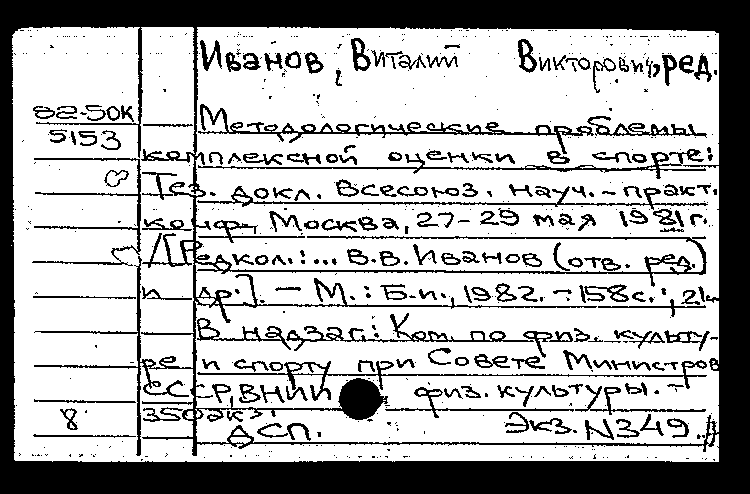 Иванов, Виталий Викторович, ред.
82-50К
5153
Методологические проблемы
комплексной оценки в спорте:
Тез. докл. Всесоюз. науч.-практ.
конф., Москва, 27-29 мая 1981г.
/[Редкол.:... В.В. Иванов (отв. ред.)
и др.]. - М.: Б.и., 1982. - 158с.;
В надзаг.: Ком. по физ. культу-
ре и спорту при Совете Министров
СССР, ВНИИ физ. культуры. -
350экз.
8
ДСП. Экз. N349